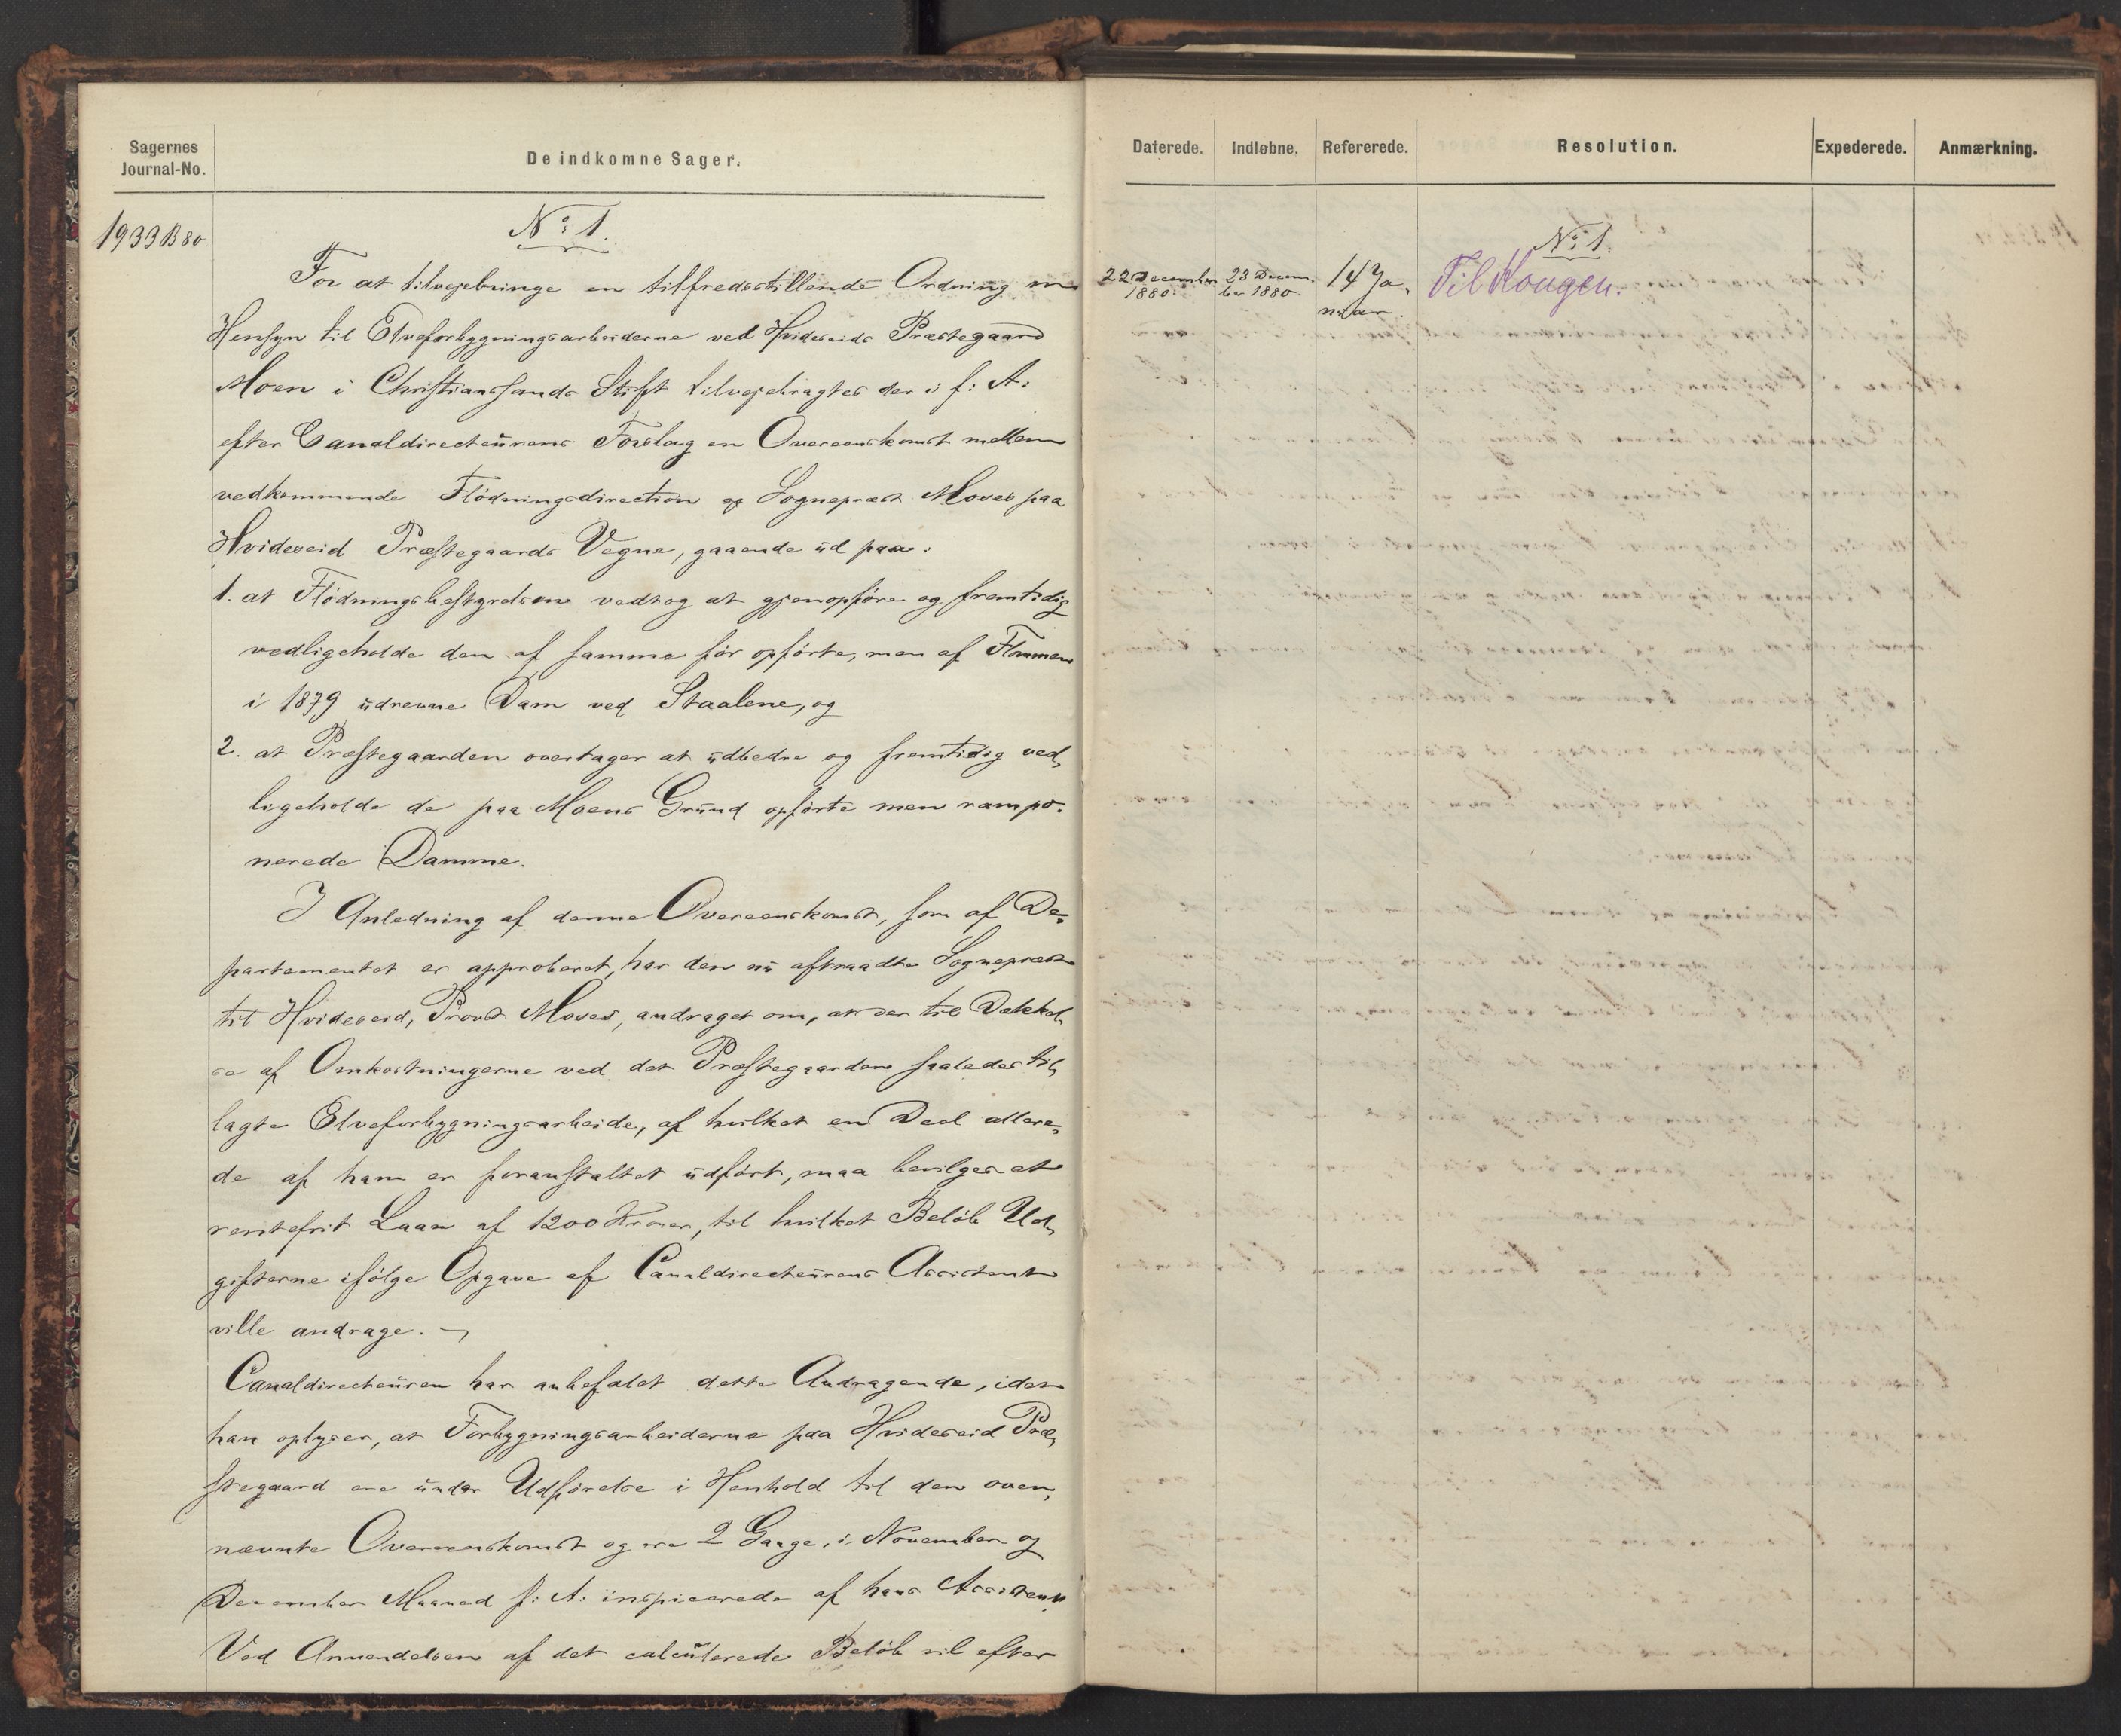 Sagernes
Journal-No.
De indkomne Sager.
1933 B 80.
No: 1.
For at tilvejebringe en tilfredsstillende Ordning m
Hensyn til Elveforbygningsarbeiderne ved Hvideseids Præstegaard
Moen i Christianssands Stift tilvejebragtes der i f: A:
efter Canaldirecteurens Forslag en Overeenskomst mellem
vedkommende Flödningsdirection og Sognepræst Moses paa
Hvideseid Præstegaards Vegne, gaaende ud paa:
1. at Flödningsbestyrelsen vedtog at gjenopföre og fremtidig
vedligeholde den af samme för opförte, men af Flommen
i 1879 udrevne Dam ved Staalene, og
2. at Præstegaarden overtager at udbedre og fremtidig ved,
ligeholde de paa Moens Grund opförte men rampo-
nerede Damme.
I Anledning af denne Overeenskomst, som af De,
partementet er approberet, har den nu aftraadte Sognepræst
til Hvideseid, Provst Moses, andraget om, at der til Dækkel,
se af Omkostningerne ved det Præstegaarden saaledes til,
lagte Elveforbygningsarbeide, af hvilket en Deel allere,
de af ham er foranstaltet udfört, maa bevilges et
rentefrit Laan af 1200 Kroner, til hvilket Belöb Ud,
gifterne ifölge Opgave af Canaldirecteurens Assistent
ville andrage. –
Canaldirecteuren har anbefalet dette Andragende, idet
han oplyser, at Forbygningsarbeiderne paa Hvideseid Præ,
stegaard ere under Udförelse i Henhold til den oven,
nævnte Overeenskomst og ere 2 Gange, i November og
December Maaned f: A: inspicerede af hans Assistent.
Ved Anvendelsen af det calculerede Belöb vil efter
Daterede.
Indløbne.
Refererede.
Resolution.
Expederede.
Anmærkning.
No: 1.
22 December
1880.
23 Decem-
ber 1880.
14 Ja,
nuar.
Til Kongen.